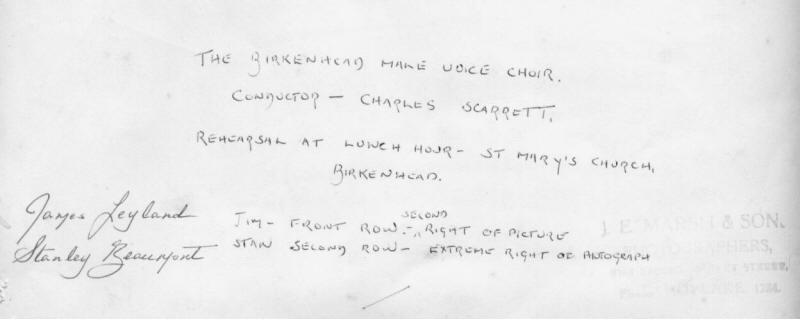 THE BIRKENHEAD MALE VOICE CHOIR.
CONDUCTOR – CHARLES SCARRETT.
REHEARSAL AT LUNCH HOUR – ST MARY'S CHURCH,
BIRKENHEAD.
James Leyland
JIM – FRONT ROW – SECOND RIGHT OF PICTURE
Stanley Beaumont
STAN SECOND ROW – EXTREME RIGHT OF PHOTOGRAPH
J. E. MARSH & SON.
PHOTOGRAPHERS,
STREET,